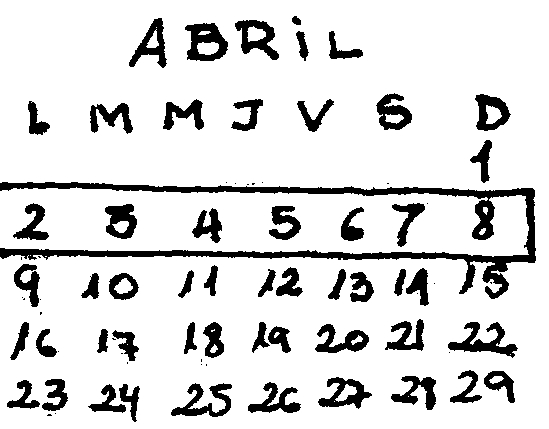 ABRiL
L M M J V S D
1
2 3 4 5 6 7 8
9 10 11 12 13 14 15
16 17 18 19 20 21 22
23 24 25 26 27 28 29